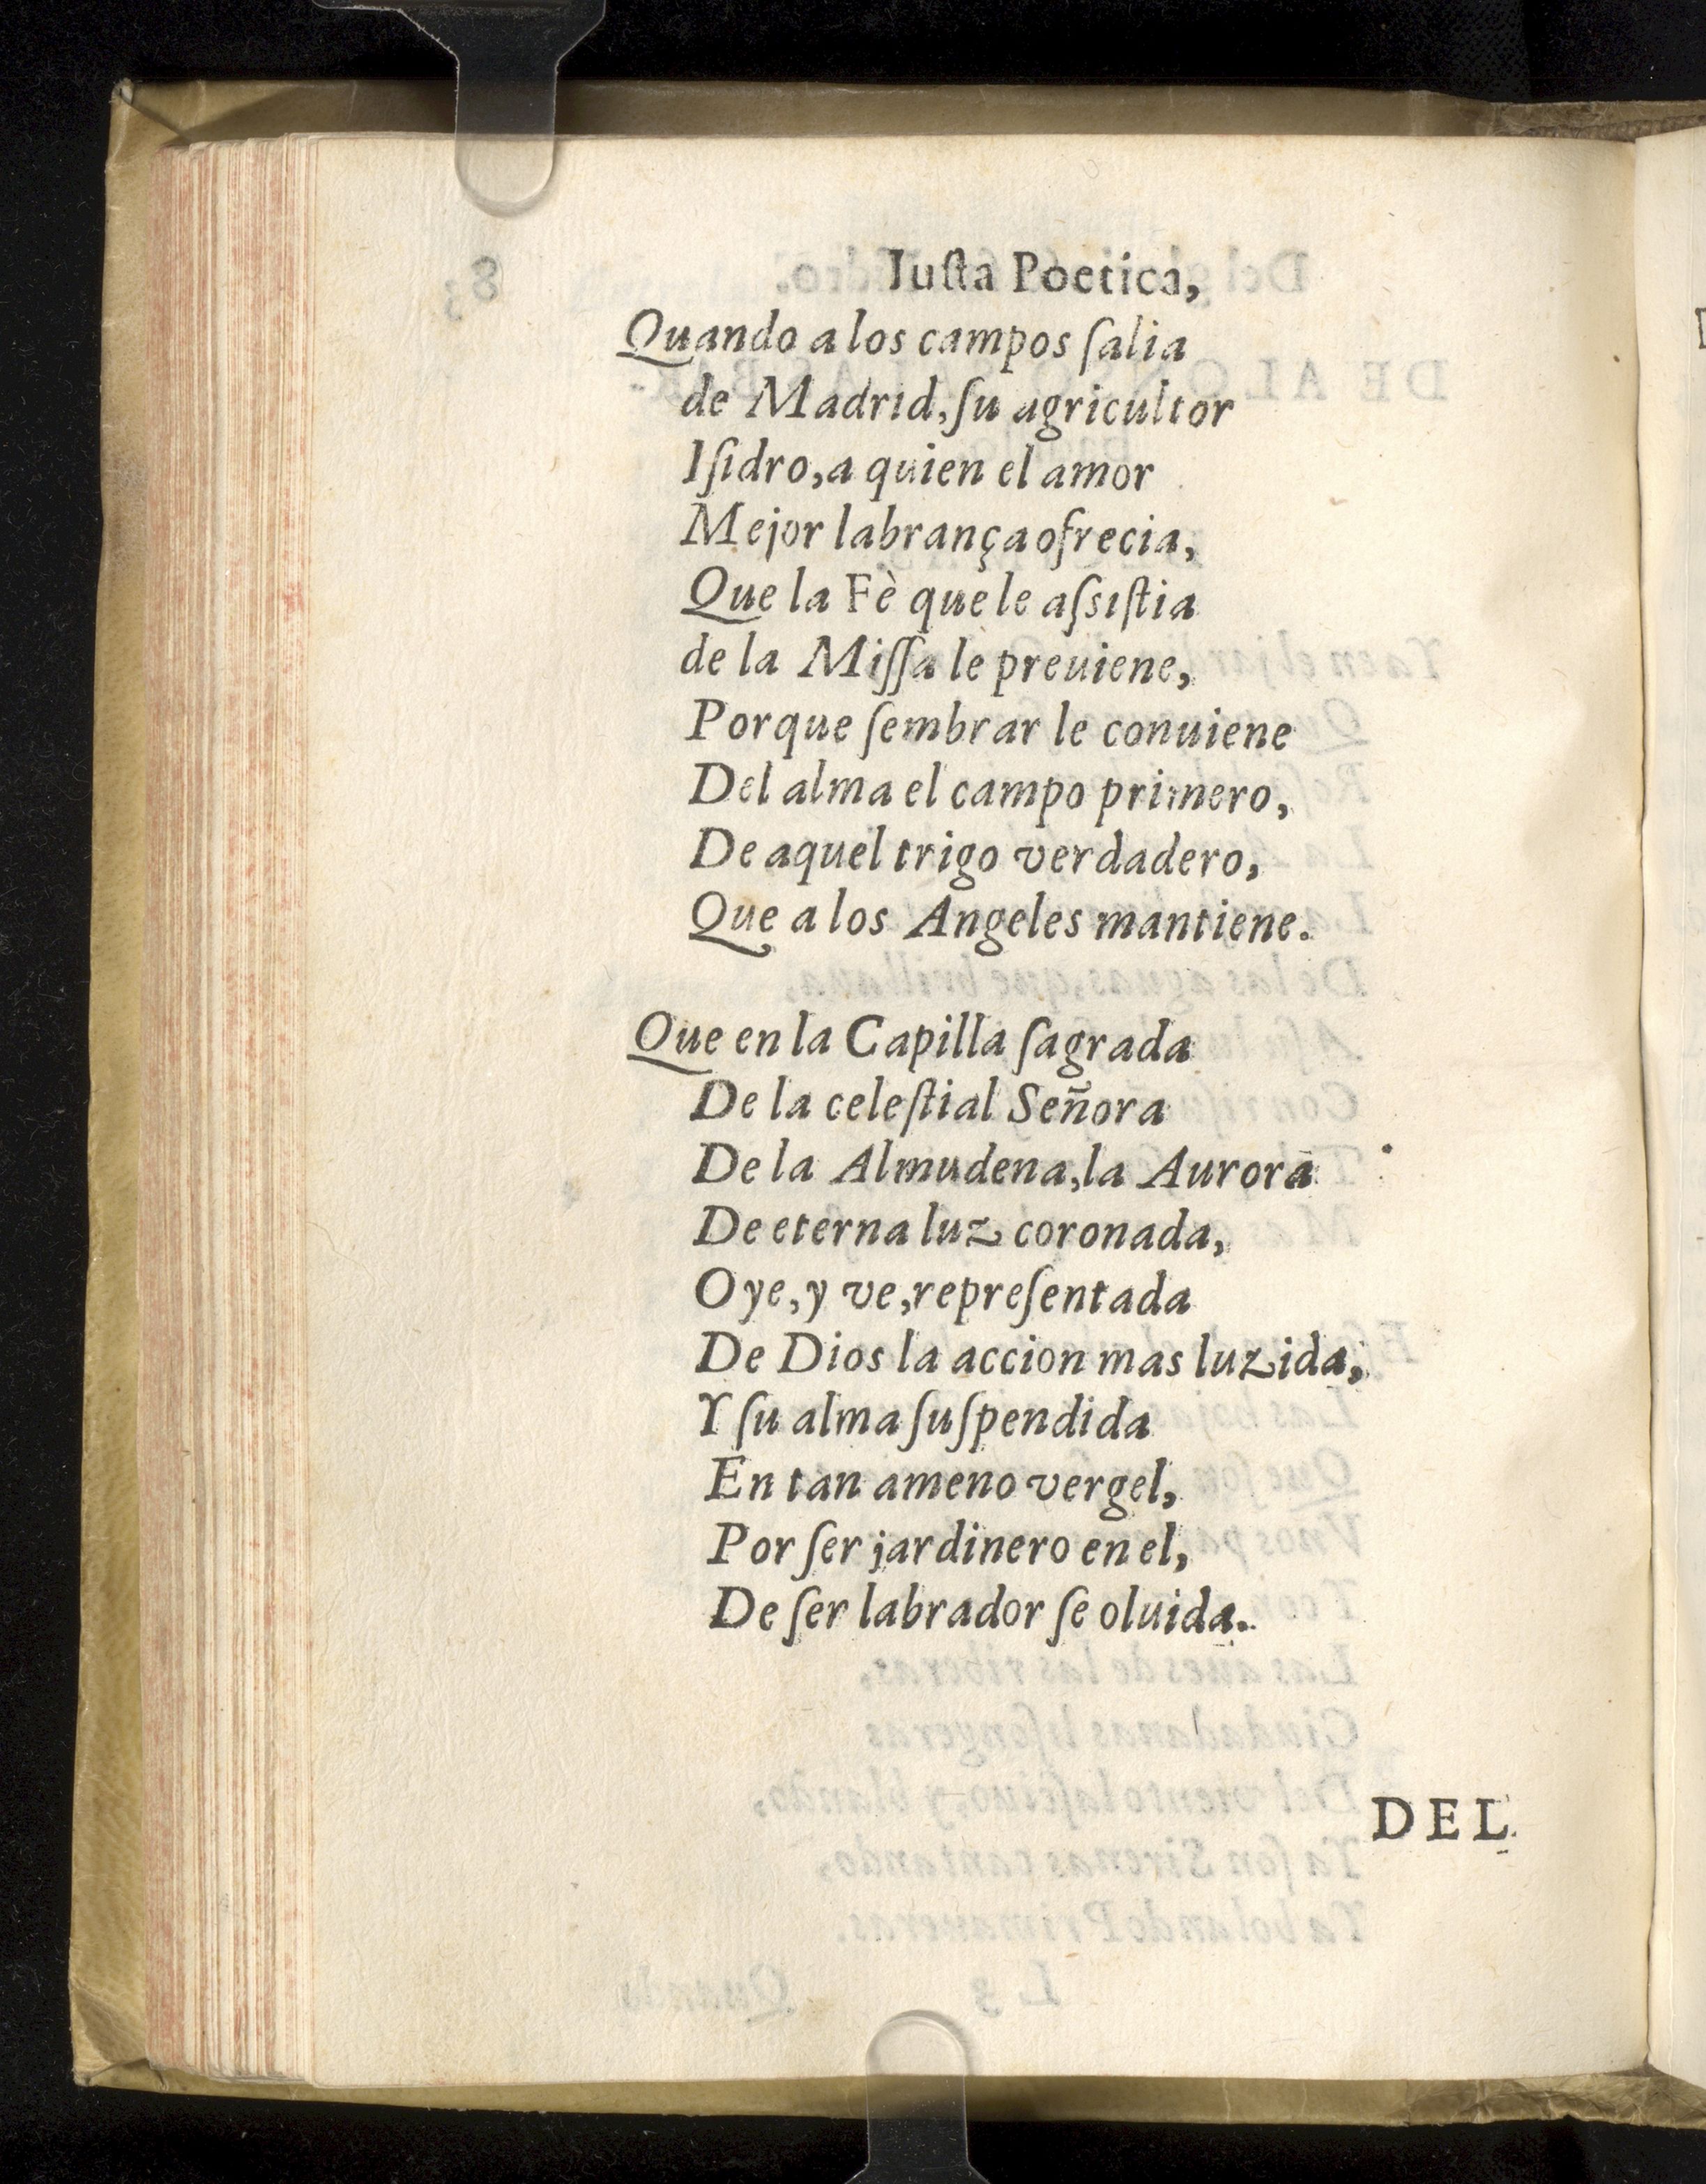 Iuſta Poetica,
Quando a los campos ſalia
de Madrid, ſu agricultor
Iſidro, a quien el amor
Mejor labrança ofrecia,
Que la Fè que le aſsiſtia
de la Miſſa le preuiene,
Porque ſembrar le conuiene
Del alma el campo primero,
De aquel trigo verdadero,
Que a los Angeles mantiene.
Que en la Capilla ſagrada
De la celeſtial Señora
De la Almudena, la Aurora
De eterna luz coronada,
Oye, y ve, repreſentada
De Dios la accion mas luzida,
Y ſu alma ſuſpendida
En tan ameno vergel,
Por ſer jardinero en el,
De ſer labrador ſe oluida.
DEL